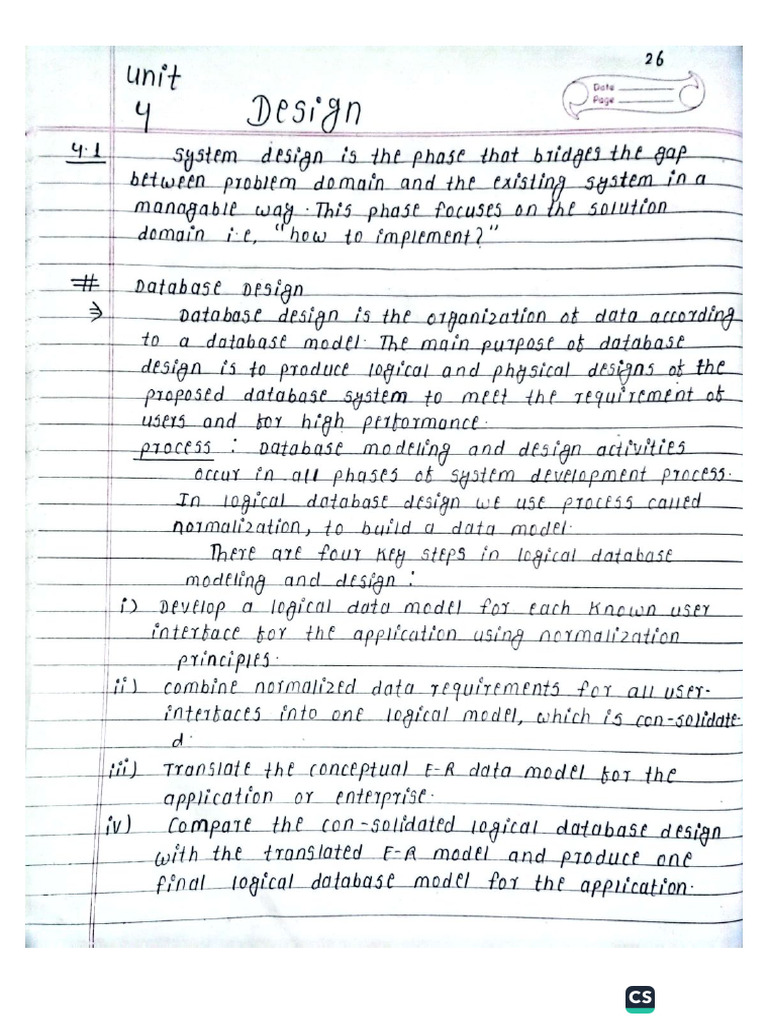 26
Unit
4 Design
Date
Page
4.1 System design is the phase that bridges the gap
between problem domain and the existing system in a
managable way. This phase focuses on the solution
domain i.e, "how to implement?"
# Database Design
⇒ Database design is the organization of data according
to a database model. The main purpose of database
design is to produce logical and physical designs of the
proposed database system to meet the requirement of
users and for high performance.
process : Database modeling and design activities
occur in all phases of system development process.
In logical database design we use process called
normalization, to build a data model.
There are four key steps in logical database
modeling and design :
i) Develop a logical data model for each known user
interface for the application using normalization
principles.
ii) combine normalized data requirements for all user-
interfaces into one logical model, which is con-solidate-
d.
iii) Translate the conceptual E-R data model for the
application or enterprise.
iv) Compare the con-solidated logical database design
with the translated E-R model and produce one
final logical database model for the application.
CS